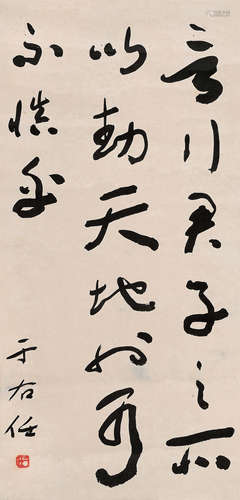 言行君子之所
以動天地可
不慎乎
于右任